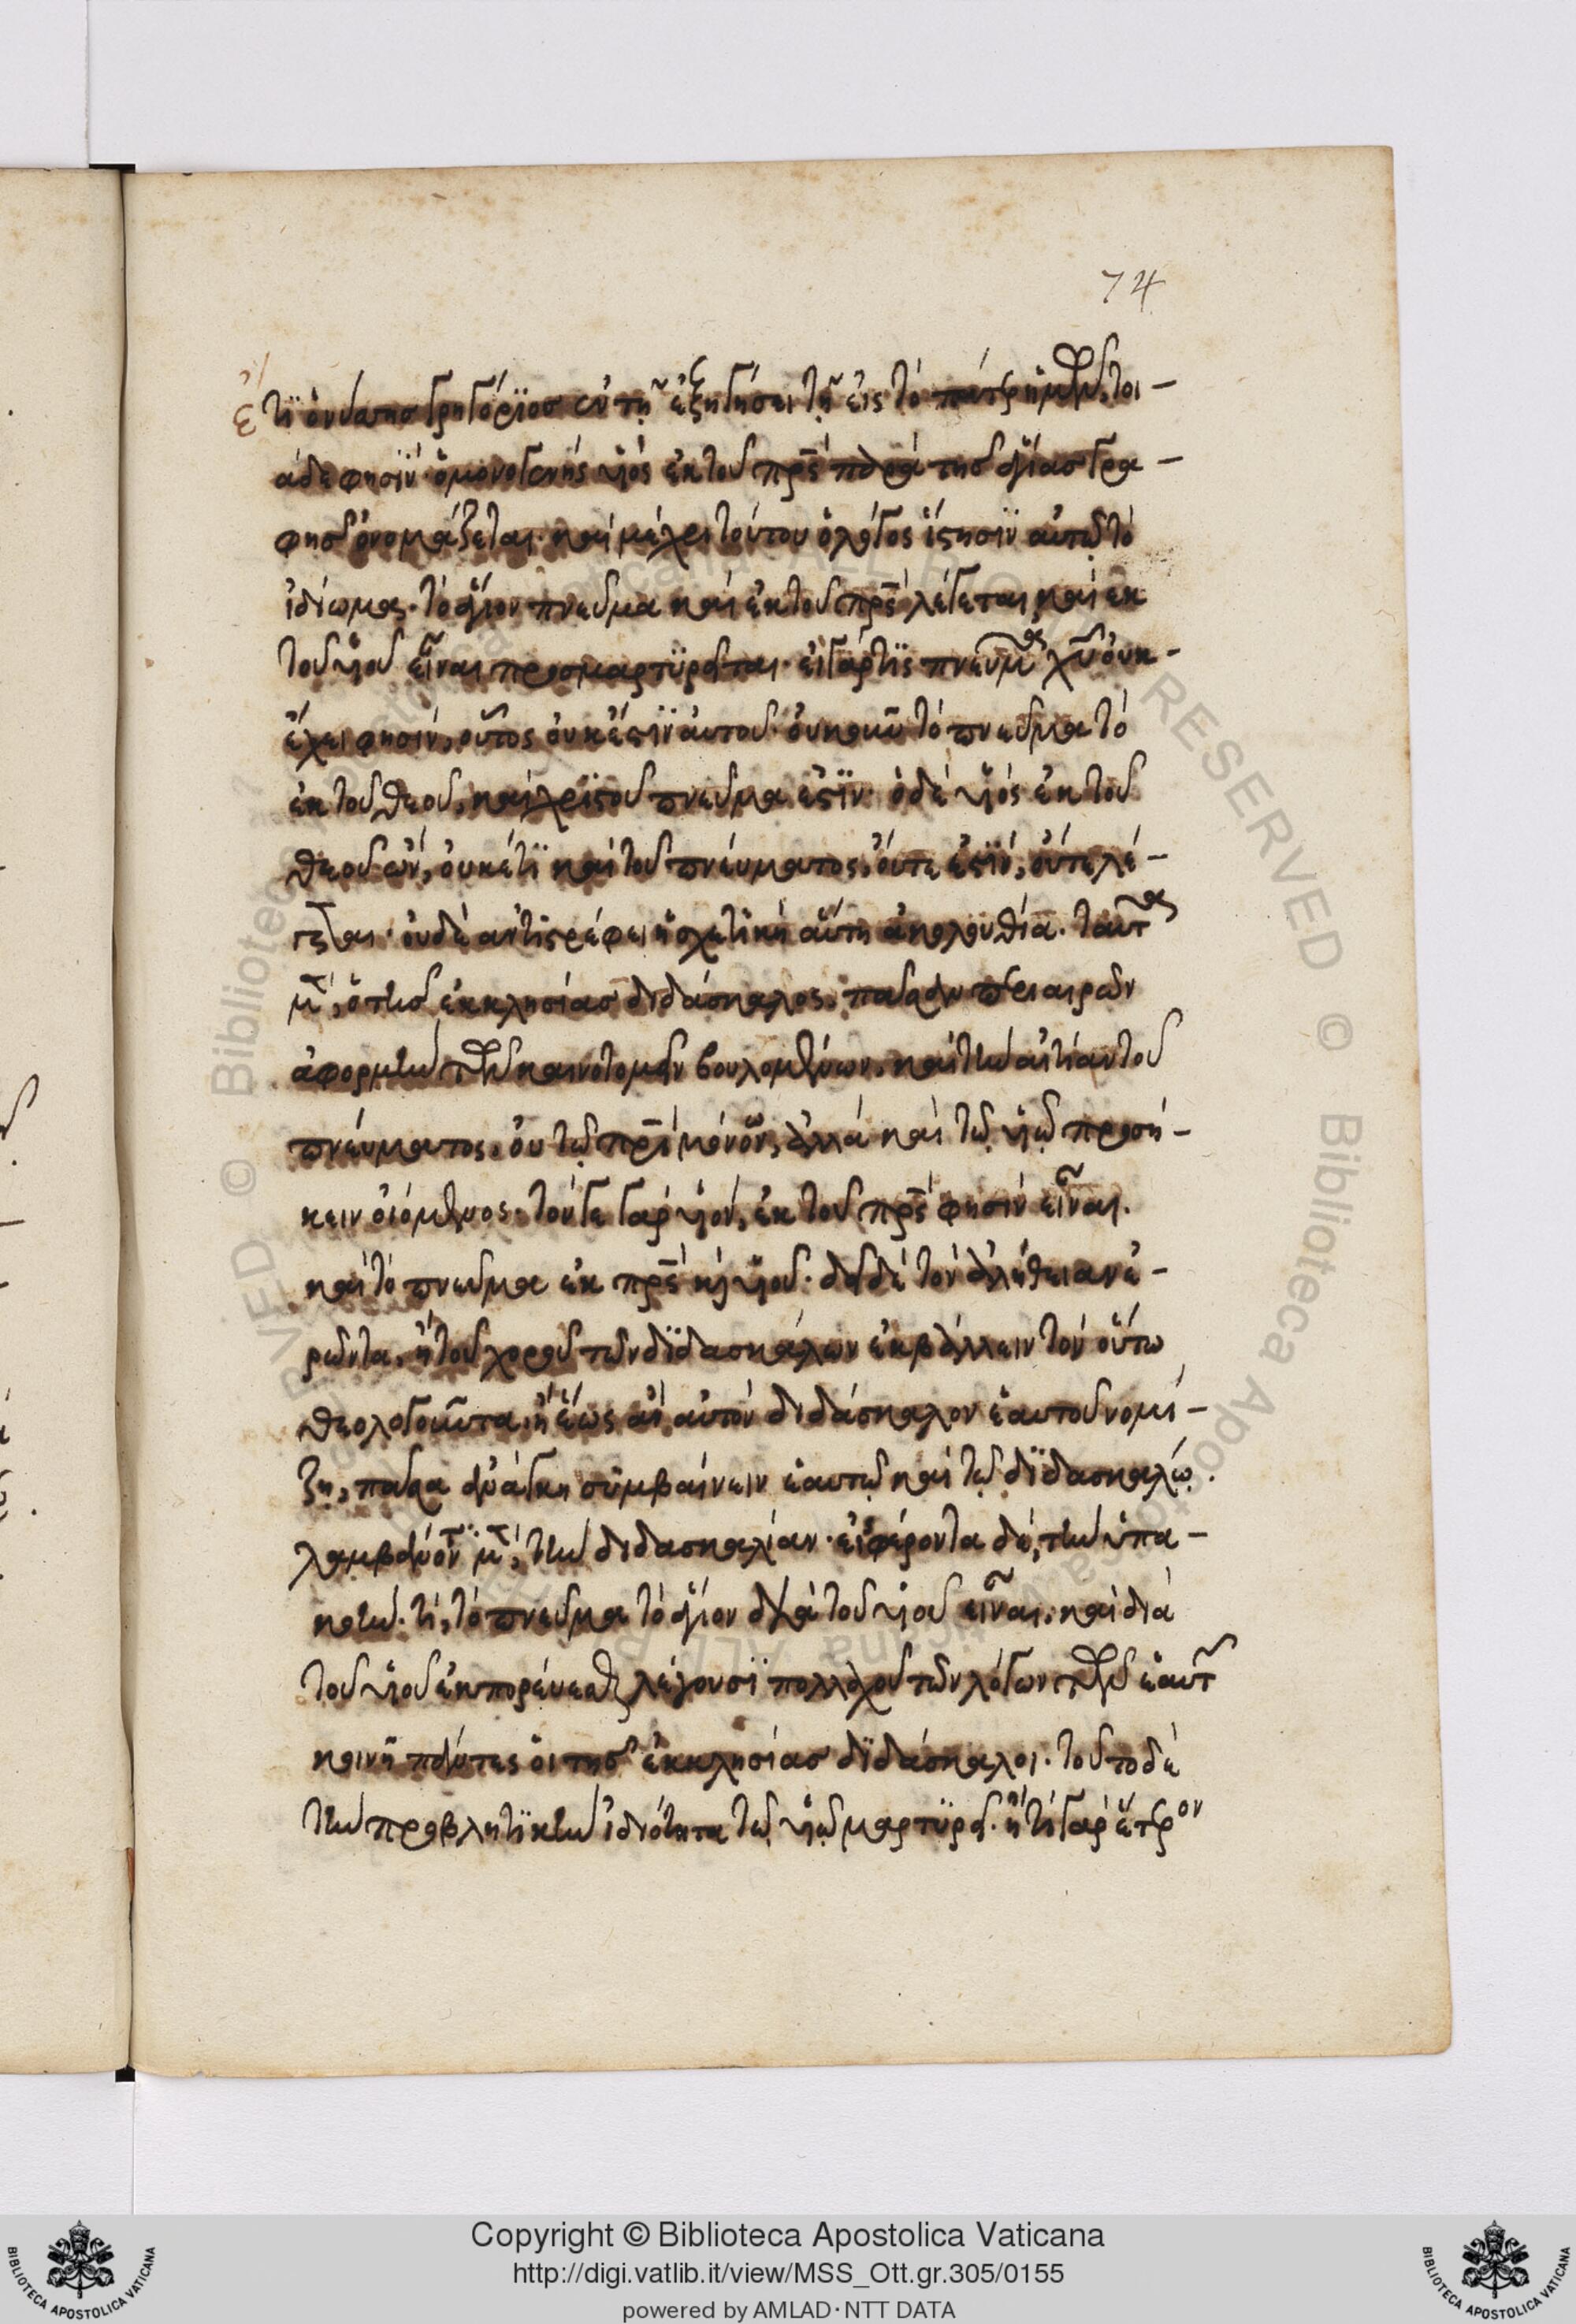 74
ἔτι ὁ νύσσης γρηγόριος ἐν τῇ ἐξηγήσει τῇ εἰς τὸ πάτερ ἡμῶν, τοι-
άδε φησίν· ὁ μονογενὴς υἱὸς ἐκ τοῦ πρς παρὰ τῆς ἁγίας γρα-
φῆς ὀνομάζεται. καὶ μέχρι τούτου ὁ λόγος ἵστησιν αὐτῷ τὸ
ἰδίωμα. τὸ ἅγιον πνεῦμα καὶ ἐκ τοῦ πρς λέγεται, καὶ ἐκ
τοῦ υἱοῦ εἶναι προσμαρτυρεῖται. εἰ γάρ τις πνεῦμα χυ οὐκ
ἔχει φησίν, οὗτος οὐκ ἔστιν αὐτοῦ. οὐκοῦν τὸ πνεῦμα τὸ
ἐκ τοῦ θεοῦ, καὶ χριστοῦ πνεῦμα ἐστίν. ὁ δὲ υἱὸς ἐκ τοῦ
θεοῦ ὢν, οὐκέτι καὶ τοῦ πνεύματος, οὔτε ἐστίν, οὔτε λέ-
γεται. οὐδὲ ἀντιστρέφει ἡ σχετικὴ αὕτη ἀκολουθία. ταῦτα
μὲν, ὁ τῆς ἐκκλησίας διδάσκαλος, πᾶσαν περιαιρῶν
ἀφορμὴν τῶν καινοτομεῖν βουλομένων, καὶ τὴν αἰτίαν τοῦ
πνεύματος, οὐ τῷ πρι μόνον, ἀλλὰ καὶ τῷ υἱῷ προσή-
κειν οἰόμενος. τόν γε γὰρ υἱόν, ἐκ τοῦ πρς φησὶν εἶναι.
καὶ τὸ πνεῦμα ἐκ πρς κ υἱοῦ. δεῖ δὲ τὸν ἀλήθειαν ἐ-
ρῶντα, ἢ τοῦ χοροῦ τῶν διδασκάλων ἐκβάλλειν τὸν οὕτω
θεολογοῦντα, ἢ ἕως ἂν αὐτὸν διδάσκαλον ἑαυτοῦ νομί-
ζῃ, πᾶσα ἀνάγκη συμβαίνειν ἑαυτῷ καὶ τῷ διδασκάλῳ.
λαμβάνον μὲν, τὴν διδασκαλίαν. εἰσφέροντα δὲ, τὴν ὑπα-
κοήν. τί, τὸ πνεῦμα τὸ ἅγιον διὰ τοῦ υἱοῦ εἶναι, καὶ διὰ
τοῦ υἱοῦ ἐκπορεύεσθαι λέγουσι πολλαχοῦ τῶν λόγων τῶν ἑαυτ
κοινῇ πάντες οἱ τῆς ἐκκλησίας διδάσκαλοι. τοῦτο δὲ
τὴν προβλητικὴν ἰδιότητα τῷ υἱῷ μαρτυρεῖ. ἢ τί γὰρ ἕτερον
Copyright © Biblioteca Apostolica Vaticana
http://digi.vatlib.it/view/MSS_Ott.gr.305/0155
powered by AMLAD·NTT DATA